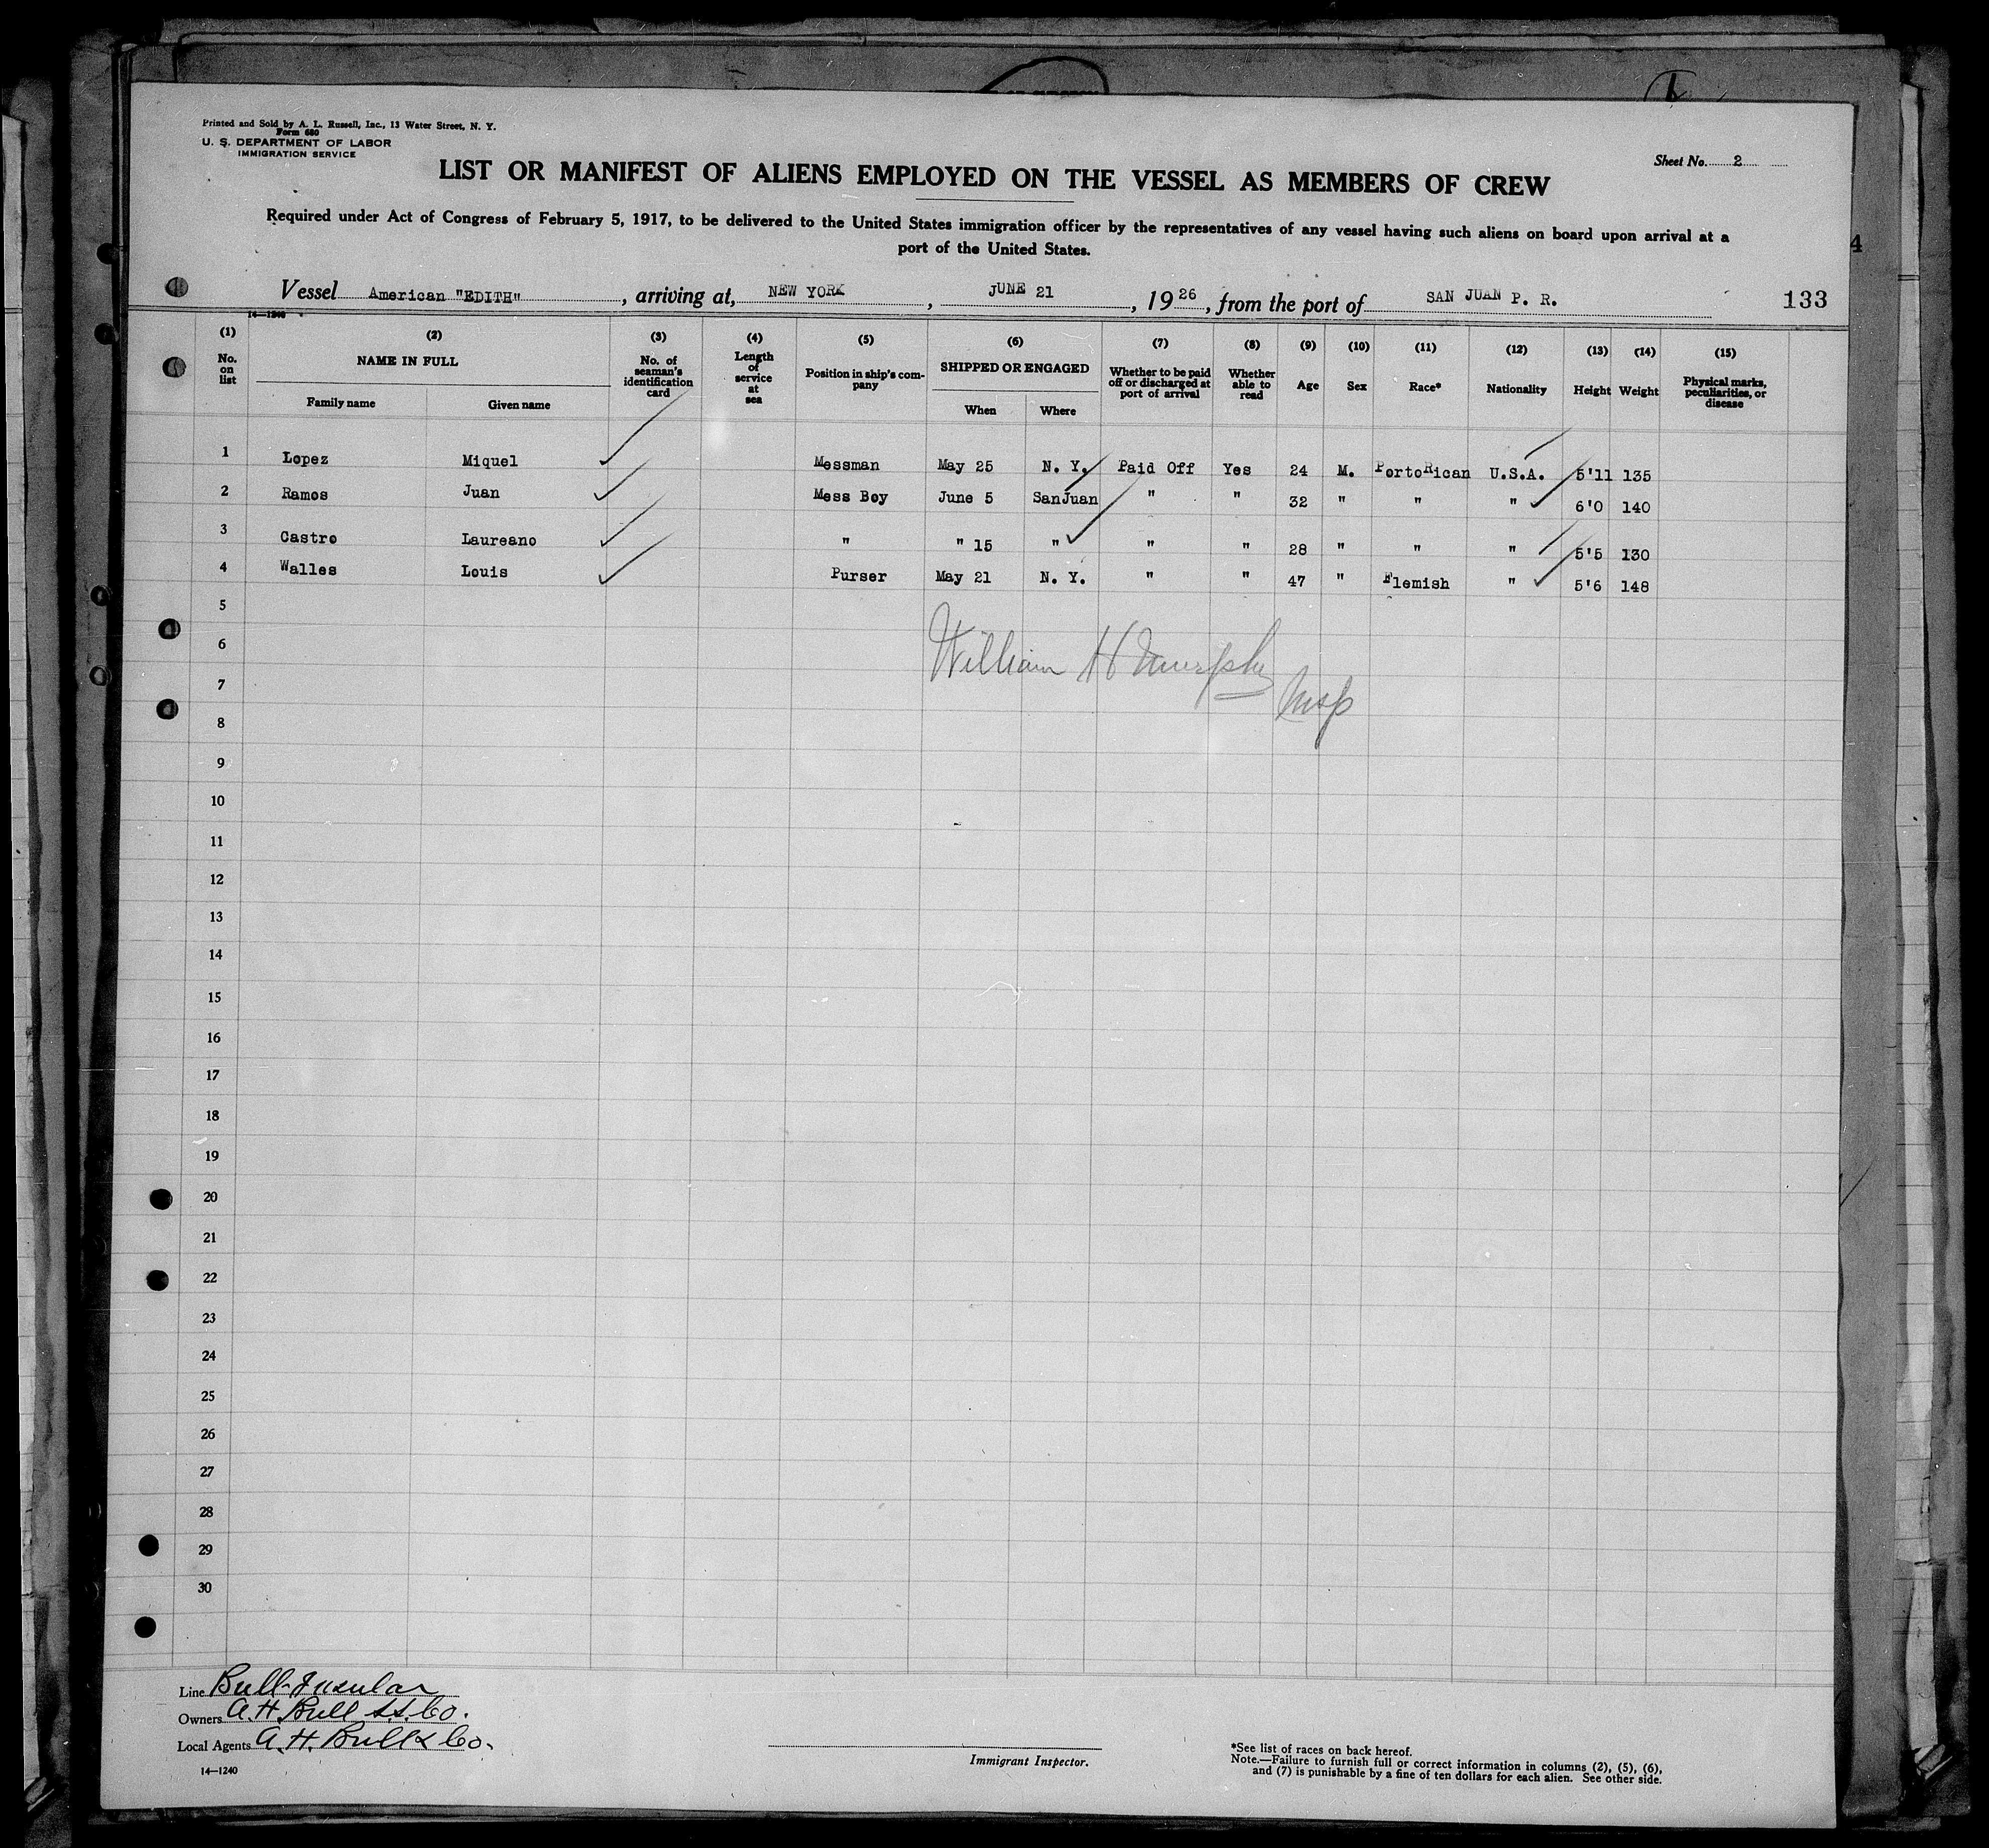 Printed and Sold by A. L. Russell, Inc., 13 Water Street, N. Y.
Form 680
U. S. DEPARTMENT OF LABOR
IMMIGRATION SERVICE
Sheet No. 2
LIST OR MANIFEST OF ALIENS EMPLOYED ON THE VESSEL AS MEMBERS OF CREW
Required under Act of Congress of February 5, 1917, to be delivered to the United States immigration officer by the representatives of any vessel having such aliens on board upon arrival at a
port of the United States.
4
Vessel American "EDITH", arriving at, NEW YORK, JUNE 21, 1926, from the port of SAN JUAN P. R. 133
14—1240
(1) (2) (3) (4) (5) (6) (7) (8) (9) (10) (11) (12) (13) (14) (15)
No. on list NAME IN FULL No. of seaman's identification card Length of service at sea Position in ship's company SHIPPED OR ENGAGED Whether to be paid off or discharged at port of arrival Whether able to read Age Sex Race* Nationality Height Weight Physical marks, peculiarities, or disease
Family name Given name When Where
1 Lopez Miquel Messman May 25 N. Y. Paid Off Yes 24 M. PortoRican U.S.A. 5'11 135
2 Ramos Juan Mess Boy June 5 SanJuan " " 32 " " " 6'0 140
3 Castro Laureano " " 15 " " " 28 " " " 5'5 130
4 Walles Louis Purser May 21 N. Y. " " 47 " Flemish " 5'6 148
5
6
William H Murphy
7
Insp
8
9
10
11
12
13
14
15
16
17
18
19
20
21
22
23
24
25
26
27
28
29
30
Line Bull-Insular
Owners A. H. Bull S.S. Co.
Local Agents A. H. Bull & Co.
14—1240
Immigrant Inspector.
*See list of races on back hereof.
Note.—Failure to furnish full or correct information in columns (2), (5), (6),
and (7) is punishable by a fine of ten dollars for each alien. See other side.